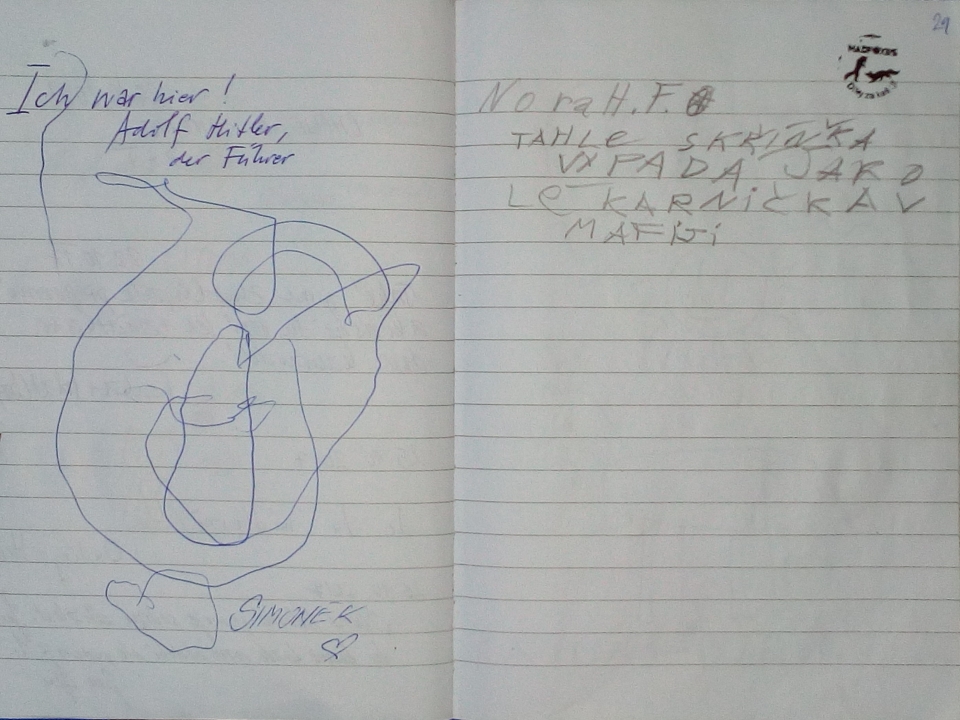 Ich war hier!
Adolf Hitler,
der Führer
SIMONEK
29
Nora H. F.
TAHLE SKŘÍŇKA
VYPADÁ JAKO
LÉKARNIČKA V
MAFIJI